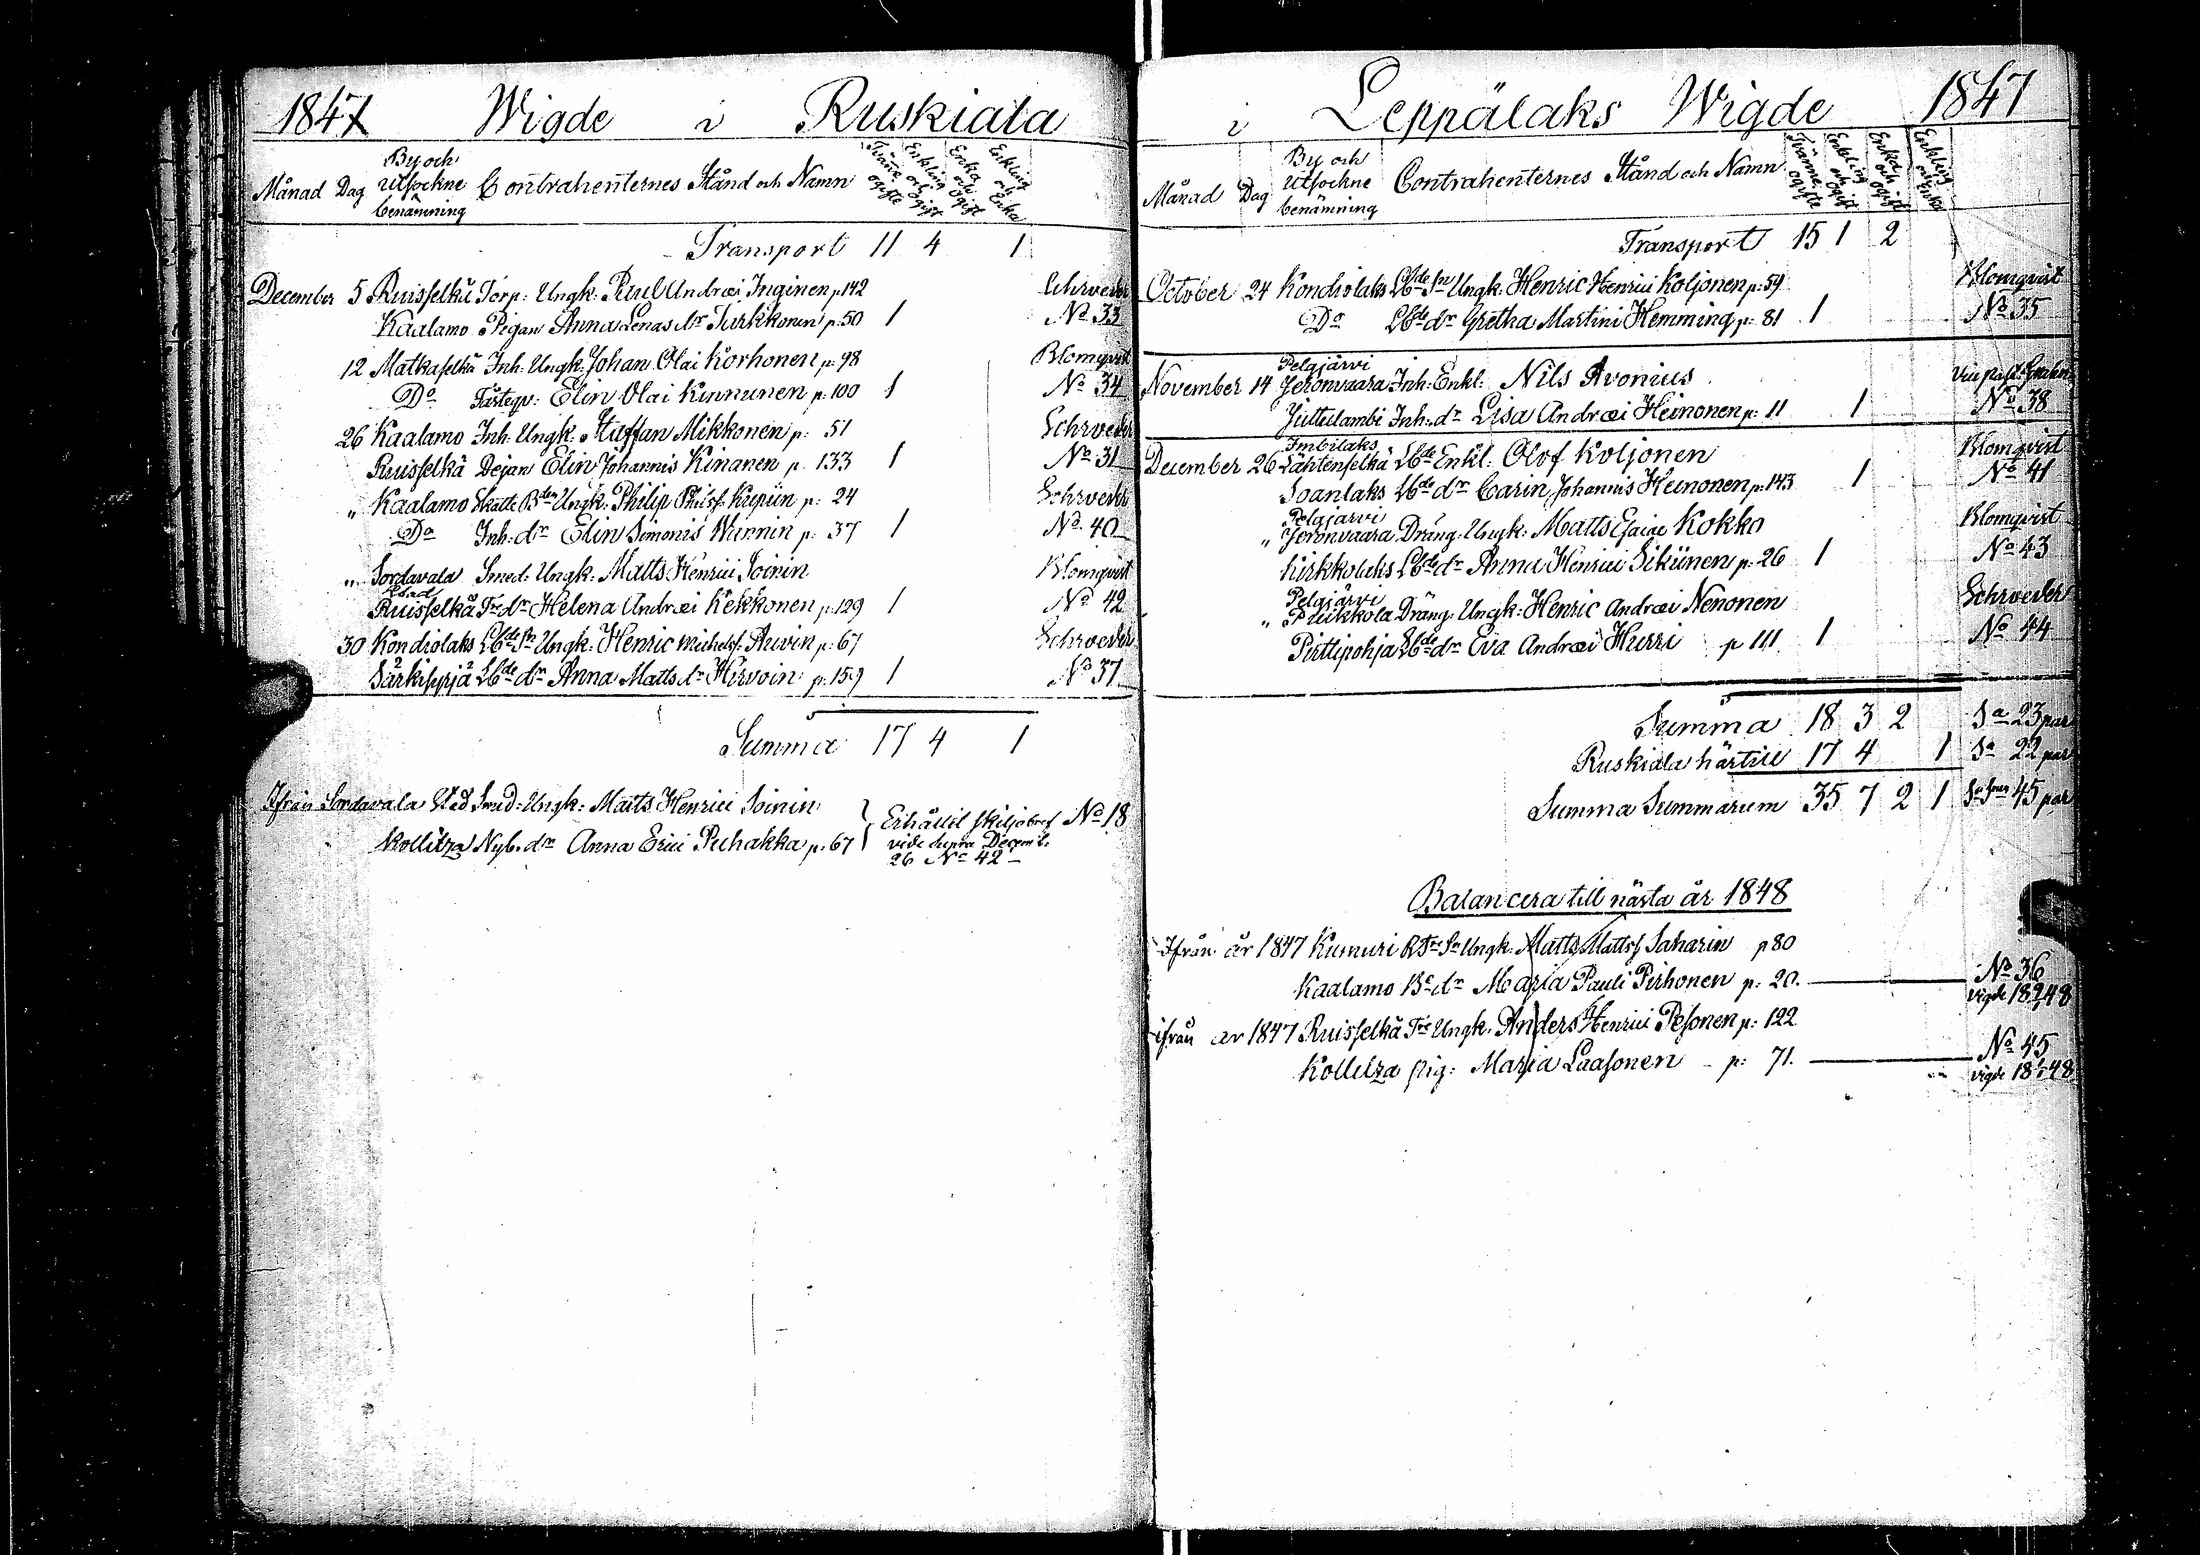 1847 Wigde i Ruskiala
Månad Dag By och Utsockne benämning Contrahenternes Stånd och Namn Tvänne ogifte Enkling och Ogift Enka och Ogift Enkling och Enka
Transport 11 4 1
December 5 Ruisselkä Torp: Ungk: Paul Andræi Inginen p. 142 Schrveder
Kaalamo Pigan Anna Lenas dr Turkkonen p. 50 1 No 33
12 Matkaselkä Inh: Ungk: Johan Olai Korhonen p. 98 Blomqvist
Do Elin Olai Kinnunen p. 100 1 No 34
26 Kaalamo Inh: Ungk: Staffan Mikkonen p: 51 Schrveder
Ruisselkä Dejan Elin Johannis Kinanen p. 133 1 No 31
„ Kaalamo Skatte Bden Ungk: Philip Philipss. p: 24 Schrveder
Do Inh: dr Elin Simonis Wärnnin p: 37 1 No. 40
„ Sordavala Stad Smed: Ungk: Matts Henrici Soinin Blomqvist
Ruisselkä Tr dr Helena Andræi Kekkonen p. 129 1 No 42
30 Kondiolaks Lbde Sn Ungk: Henric Michelss. Arvin p: 67 Schrveder
Särkisyrjä Lbde dr Anna Matts dr Hirvoin p. 159 1 No 37
Summa 17 4 1
Ifrån Sordavala Stad Smed: Ungk: Matts Henrici Soinin
Kollitza Nyb. dr Anna Erici Puhakka p. 67 Erhållit skiljobref No 18
vide supra Decemb.
26 No 42
i Leppälaks Wigde 1847
Månad Dag By och Utsockne benämning Contrahenternes Stånd och Namn Tvänne ogifte Enkling och Ogift Enka och Ogift Enkling och Enka
Transport 15 1 2
October 24 Kondiolaks Lbde Sn Ungk: Henric Henrici Koljonen p: 59 Blomqvist
Do Lbde dr Gretha Martini Hemming p: 81 1 No 35
Pelgjärvi
November 14 Jeronvaara Inh: Enkl: Nils Avonius
Juttulambi Inh: dr Lisa Andræi Heinonen p: 11 1 No 38
Imbilaks
December 26 Lähtenselkä Lbde Enkl: Olof Koljonen Blomqvist
Soanlaks Lbde dr Carin Johannis Heinonen p. 143 1 No 41
Pelgjärvi
„ Jeronvaara Dräng: Ungk: Matts Esaiæ Kokko Blomqvist
Kirkkolaks Lbde dr Anna Henrici Sikiinen p: 26 1 No 43
Pelgjärvi
„ Puikkola Dräng: Ungk: Henric Andræi Nenonen Schrveder
Pirttipohja Lbde dr Eva Andræi Hurri p 111 1 No 44
Summa 18 3 2 Sa 23 par
Ruskiala härtill 17 4 1 Sa 22 par
Summa Summarum 35 7 2 1 Sa Srum 45 par
Balancera till nästa år 1848
Ifrån år 1847 Kumuri Sn Ungk: Matts Mattss Saharin p 80
Kaalamo Be dr Maria Pauli Pirhonen p: 20. No 36
vigde 18 48
ifrån år 1847 Ruisselkä Tre Ungk. Anders Henrici Pesonen p: 122
Kollitza pig: Maria Laasonen p: 71. No 45
vigde 18 48